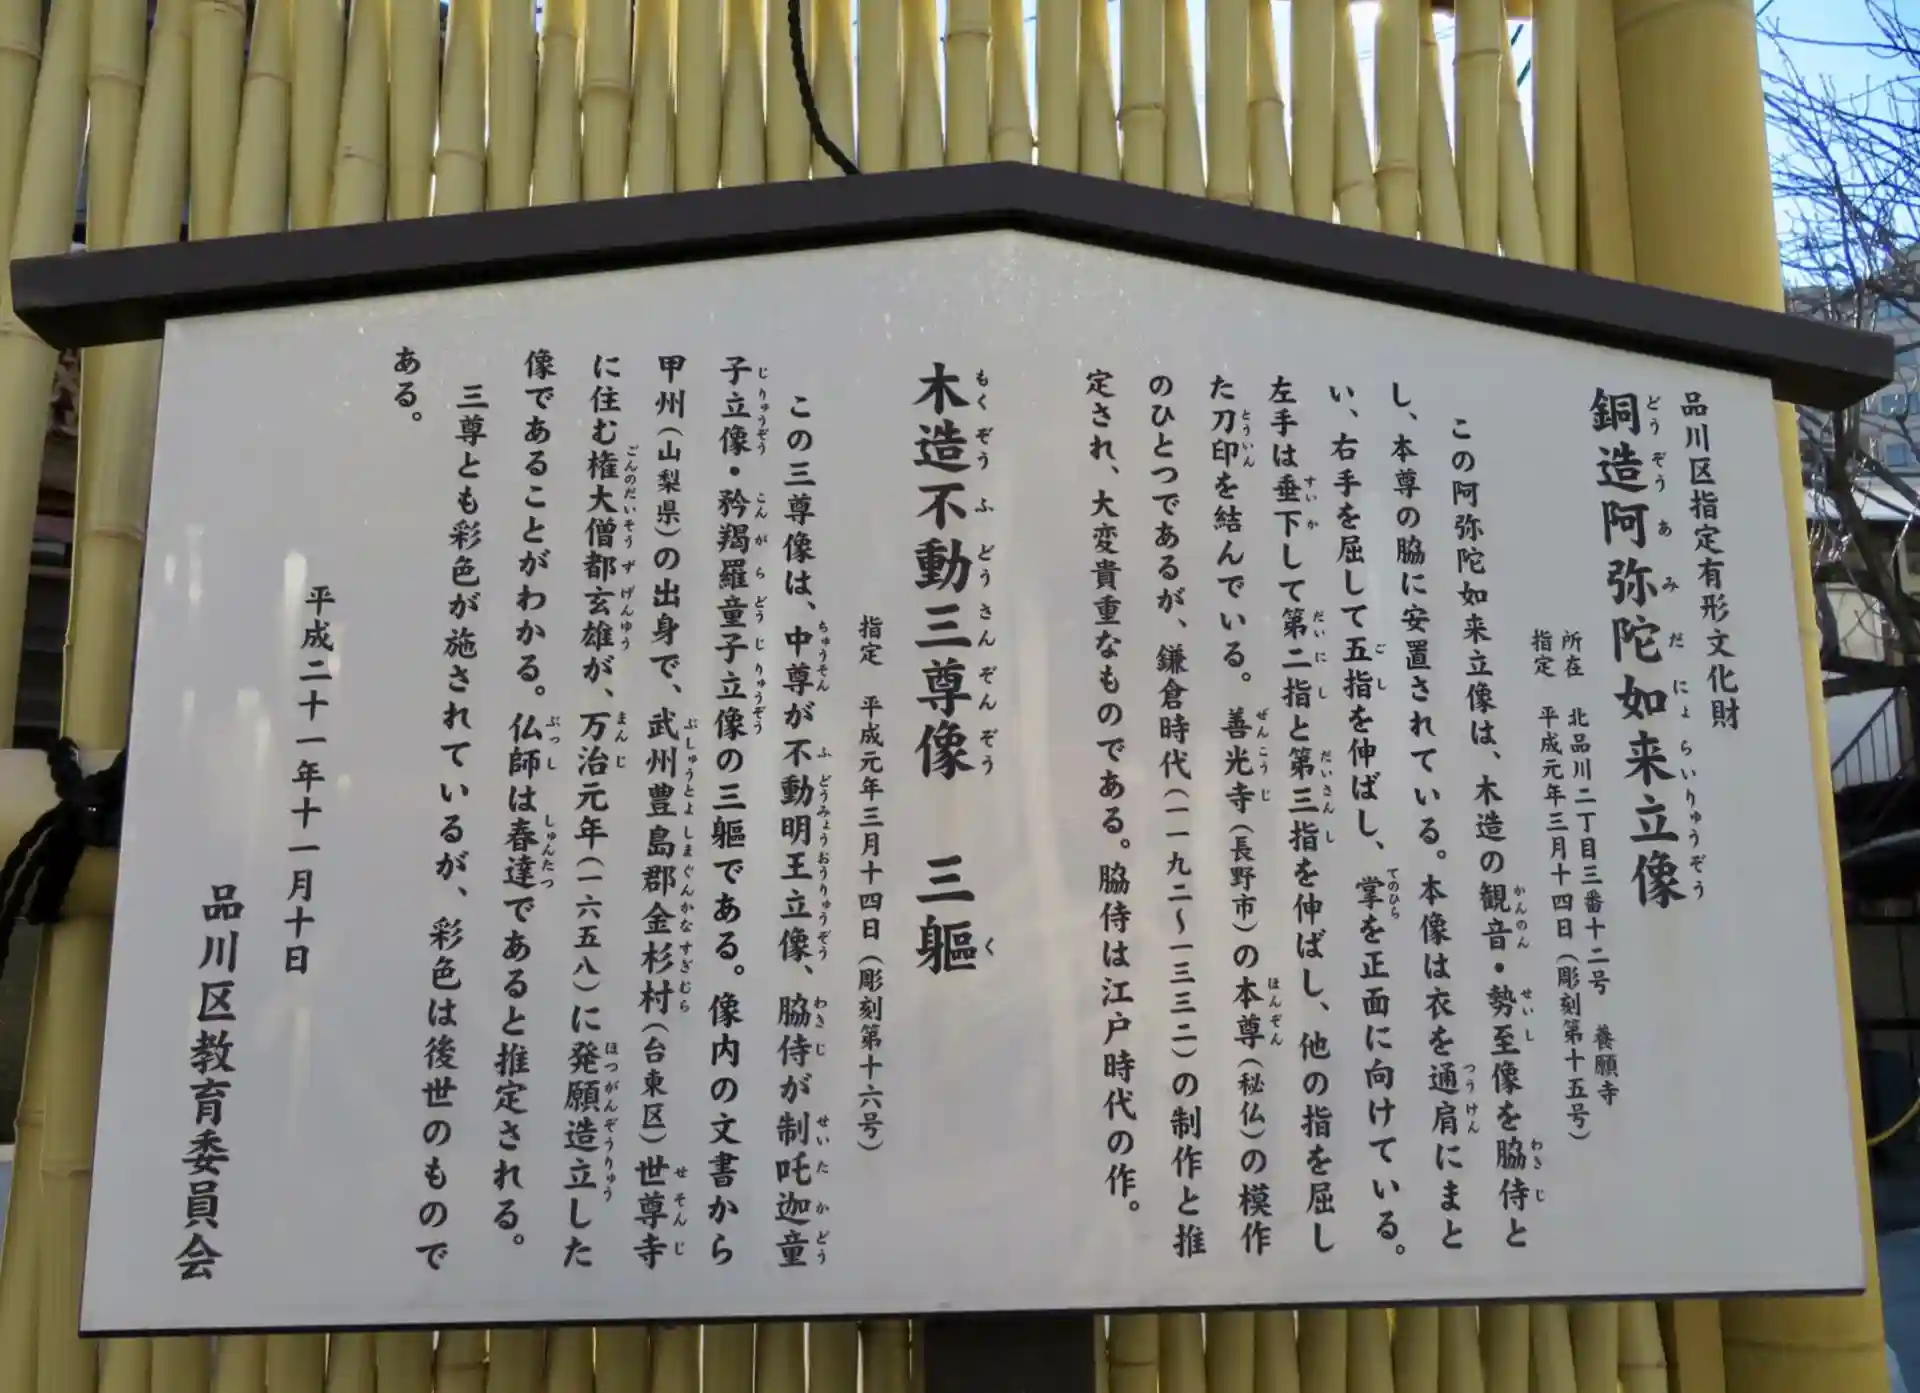 品川区指定有形文化財
銅造阿弥陀如来立像
所在　北品川二丁目三番十二号　養願寺
指定　平成元年三月十四日（彫刻第十五号）
この阿弥陀如来立像は、木造の観音・勢至像を脇侍と
し、本尊の脇に安置されている。本像は衣を通肩にまと
い、右手を屈して五指を伸ばし、掌を正面に向けている。
左手は垂下して第二指と第三指を伸ばし、他の指を屈し
た刀印を結んでいる。善光寺（長野市）の本尊（秘仏）の模作
のひとつであるが、鎌倉時代（一一九二〜一三三二）の制作と推
定され、大変貴重なものである。脇侍は江戸時代の作。
木造不動三尊像　三軀
指定　平成元年三月十四日（彫刻第十六号）
この三尊像は、中尊が不動明王立像、脇侍が制吒迦童
子立像・矜羯羅童子立像の三軀である。像内の文書から
甲州（山梨県）の出身で、武州豊島郡金杉村（台東区）世尊寺
に住む権大僧都玄雄が、万治元年（一六五八）に発願造立した
像であることがわかる。仏師は春達であると推定される。
三尊とも彩色が施されているが、彩色は後世のもので
ある。
平成二十一年十一月十日
品川区教育委員会